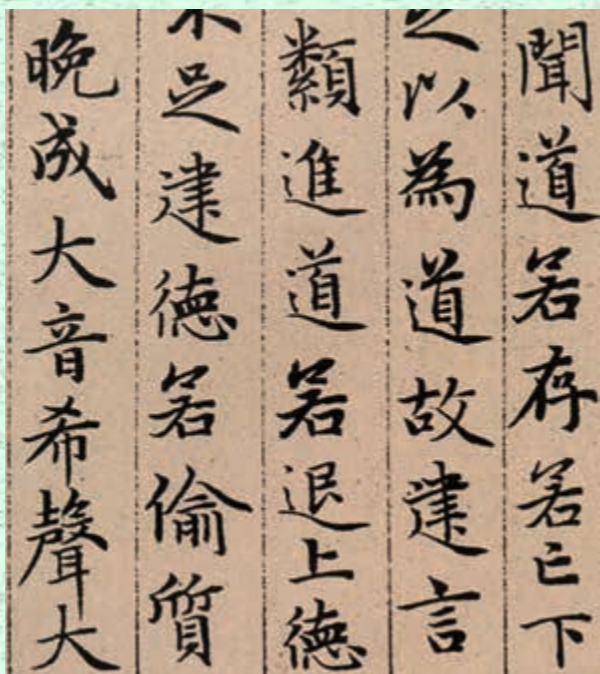 聞道若存若亡下
以為道故建言
纇進道若退上德
不足建德若偷質
晚成大音希聲大